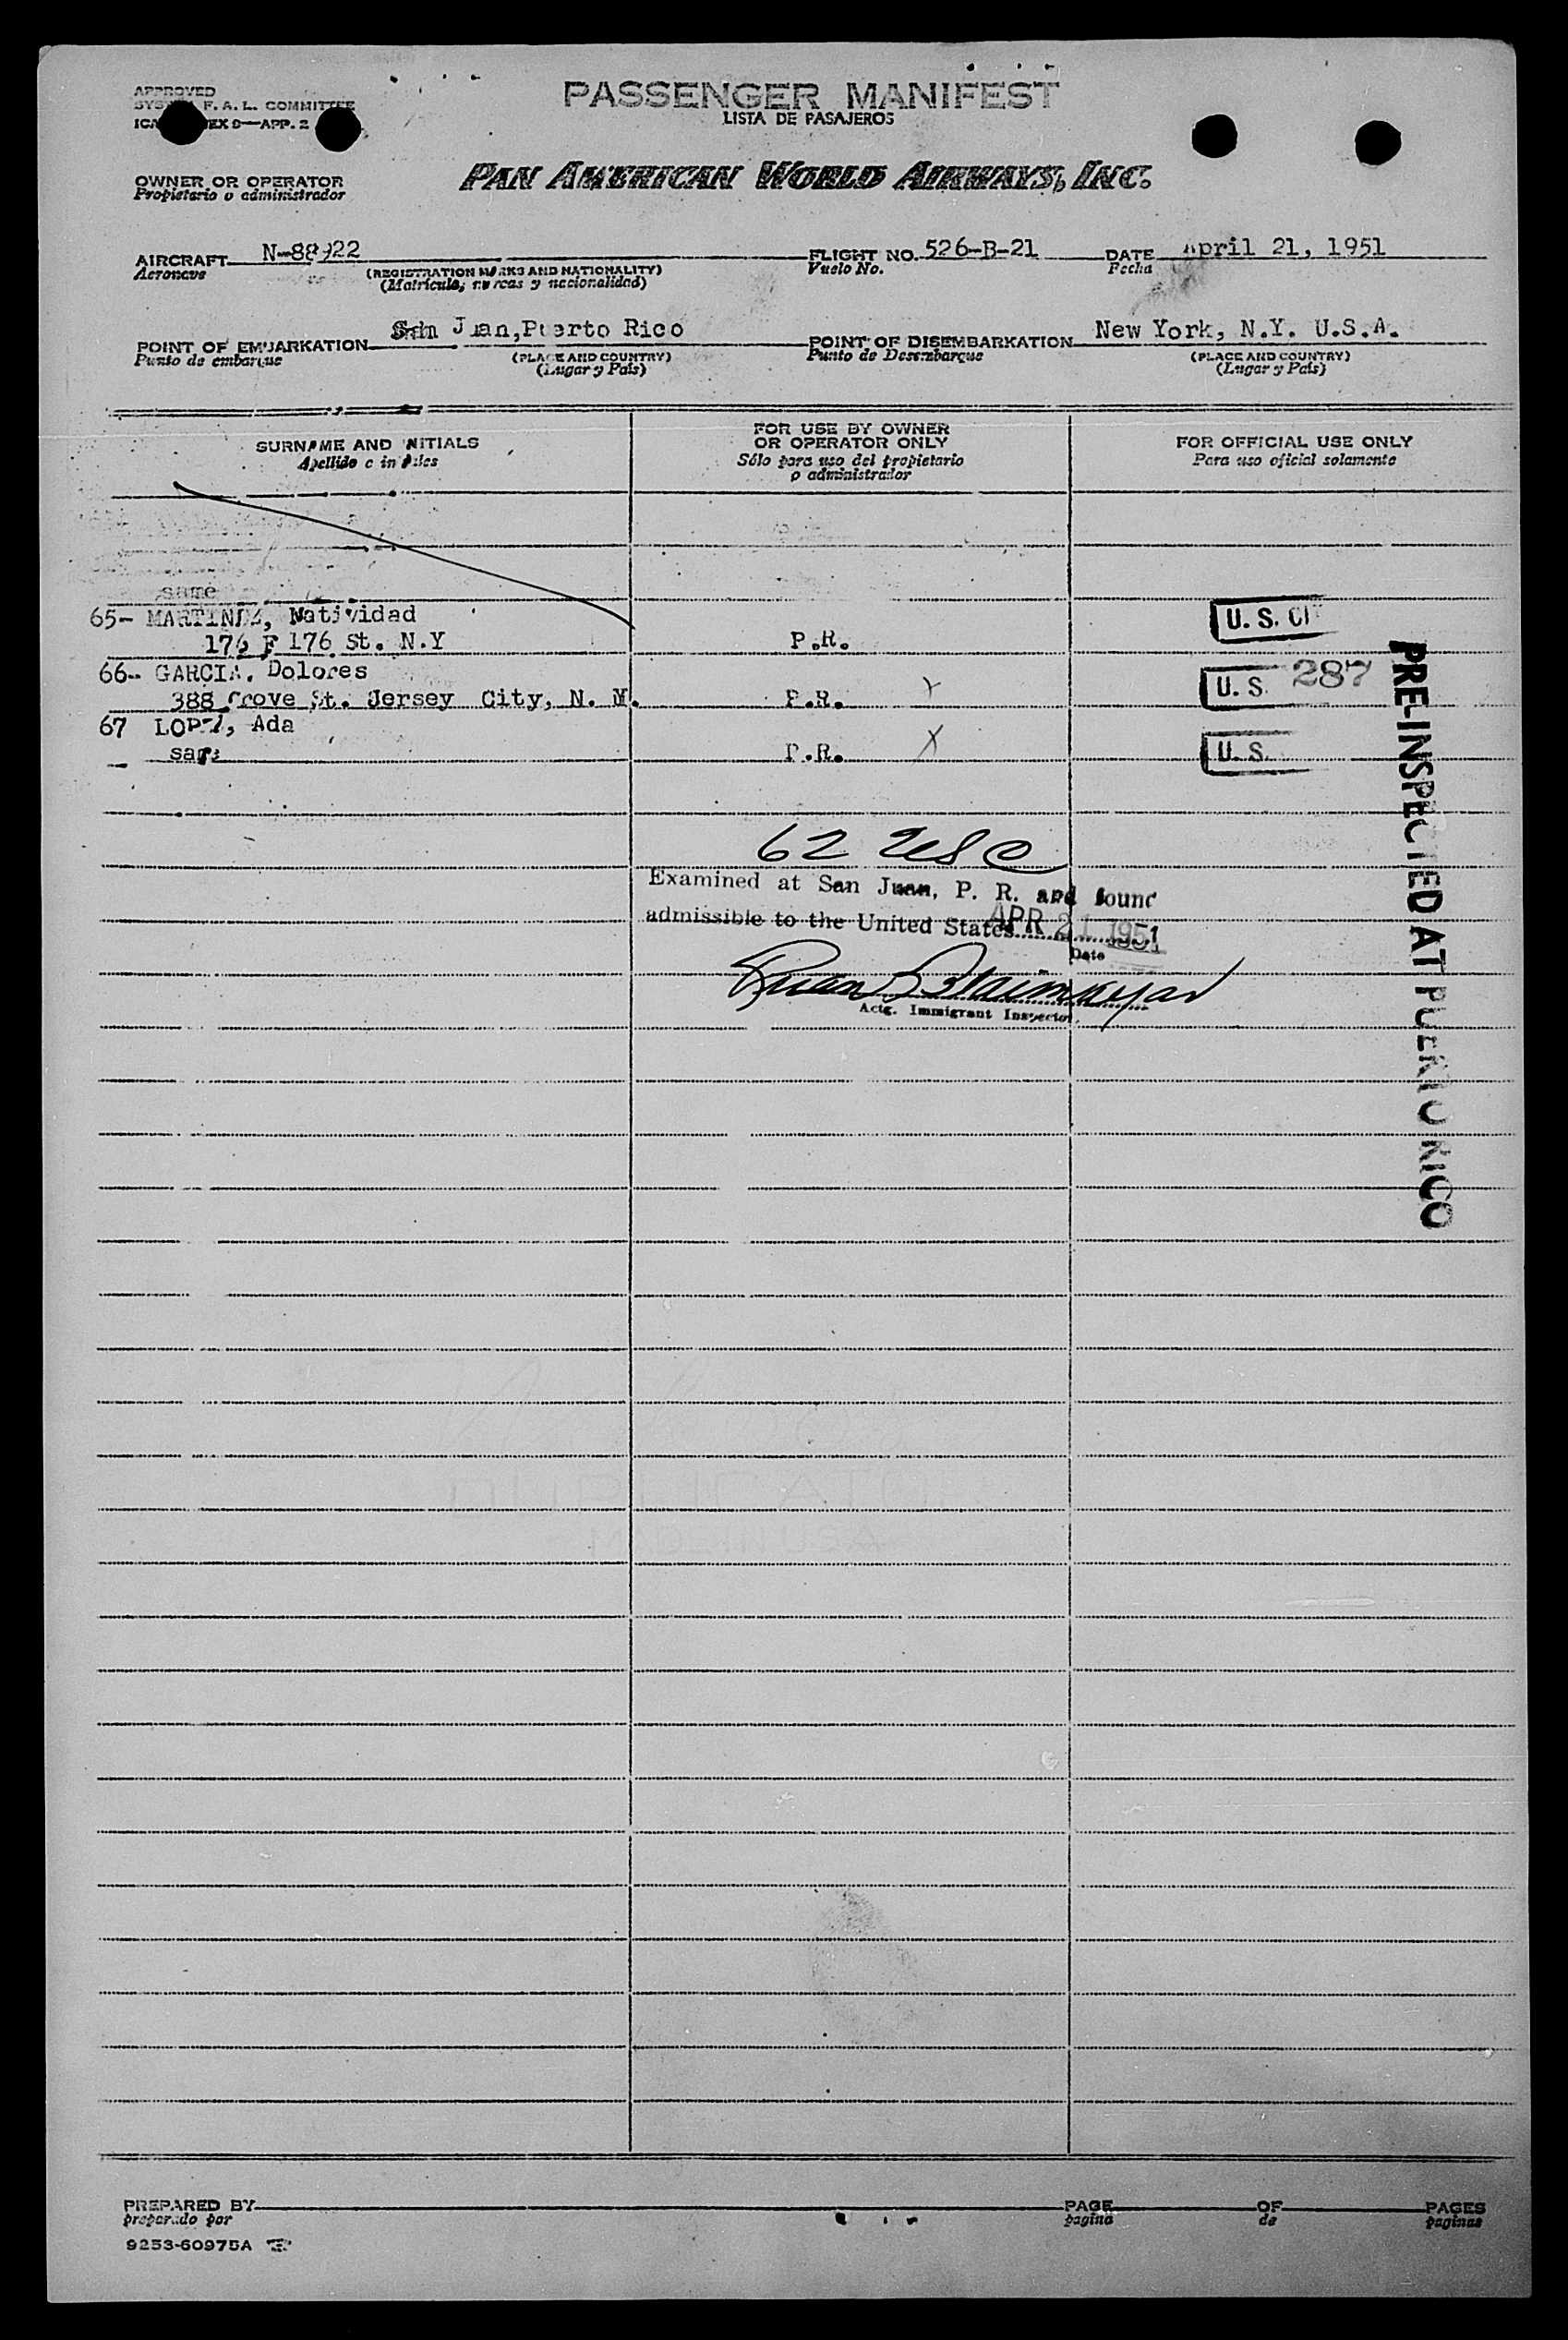 APPROVED
SYSTEM F. A. L. COMMITTEE
EX 9—APP. 2
PASSENGER MANIFEST
LISTA DE PASAJEROS
OWNER OR OPERATOR
Propietario o administrador
PAN AMERICAN WORLD AIRWAYS, INC.
AIRCRAFT N-88922 FLIGHT NO. 526-B-21 DATE April 21, 1951
Aeronave (REGISTRATION MARKS AND NATIONALITY) Vuelo No. Fecha
(Matricula, marcas y nacionalidad)
POINT OF EMBARKATION San Juan, Puerto Rico POINT OF DISEMBARKATION New York, N.Y. U.S.A.
Punto de embarque (PLACE AND COUNTRY) Punto de Desembarque (PLACE AND COUNTRY)
(Lugar y País) (Lugar y País)
SURNAME AND INITIALS
Apellido e iniciales
FOR USE BY OWNER
OR OPERATOR ONLY
Sólo para uso del propietario
o administrador
FOR OFFICIAL USE ONLY
Para uso oficial solamente
same
65- MARTINEZ, Natividad U. S. CI
176 E 176 St. N.Y P.R.
66- GARCIA, Dolores U. S. 287
388 Grove St. Jersey City, N. P.R. X
67 LOPEZ, Ada
same P.R. X U. S.
PRE-INSPECTED AT PUERTO RICO
62 USC
Examined at San Juan, P. R. and found
admissible to the United States APR 21 1951
Date
Actg. Immigrant Inspector.
PREPARED BY PAGE OF PAGES
preparado por pagina de paginas
9253-60975A